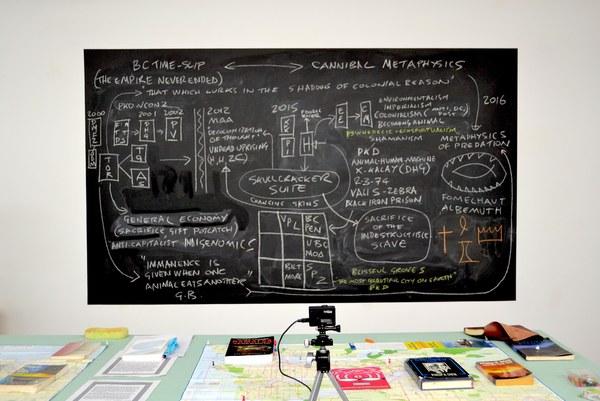 BC TIME-SLIP ⟷ CANNIBAL METAPHYSICS
(THE EMPIRE NEVER ENDED)
"THAT WHICH LURKS IN THE SHADOWS OF COLONIAL REASON"
2000
2001
2002
TOR
2012
MAA
DECOLONIZATION
OF THOUGHT
UNDEAD UPRISING
2015
P
H
EE
CM
ENVIRONMENTALISM
IMPERIALISM
COLONIALISM
POST
BECOMING ANIMAL
PSYCHEDELIC
SHAMANISM
2016
METAPHYSICS
OF PREDATION
FOMELHAUT
ALBEMUTH
PKD
ANIMAL-HUMAN-MACHINE
X-KALAY (DHG)
2-3-74
VALIS-ZEBRA
BLACK IRON PRISON
SKULLCRACKER
SUITE
CHANGING SKINS
GENERAL ECONOMY
(SACRIFICE GIFT POTLATCH)
ANTI-CAPITALIST
"IMMANENCE IS
GIVEN WHEN ONE
ANIMAL EATS ANOTHER"
G.B.
VPL
BC
PEN
UBC
MOA
SACRIFICE
OF THE
INDESTRUCTIBLE
SLAVE
BLISSFUL GROVES
"THE MOST BEAUTIFUL CITY ON EARTH"
PKD